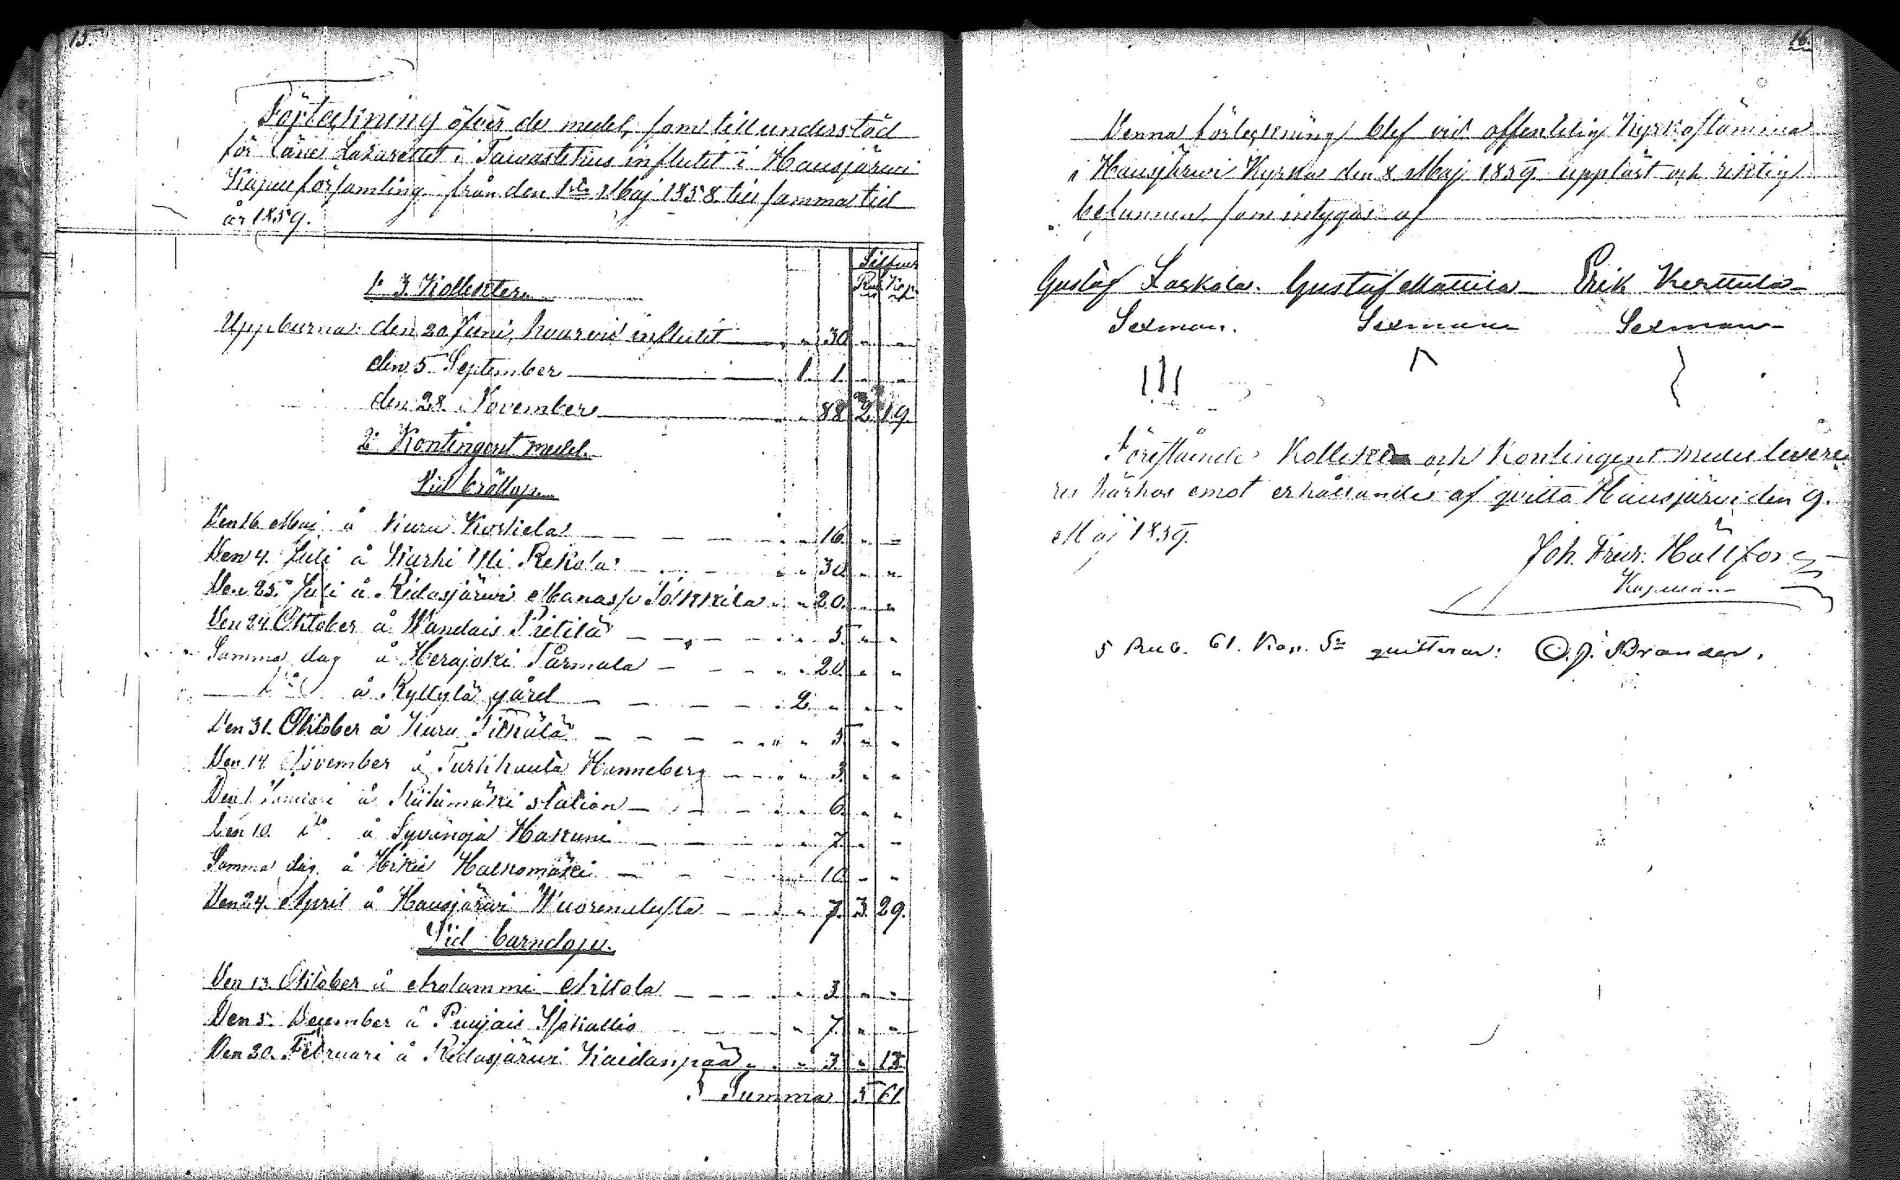 15.
Förteckning öfver de medel, som till understöd
för Läns Lazarettet i Tavastehus influtit i Hausjärwi
Kapellförsamling från den 1sta Maj 1858 till samma tid
år 1859.
Silfver
Rub. Kop.
1o 3 Kollekter.
Uppburna: den 20 Juni, hvarvid influtit - 30 - -
den 5 September 1 1 - -
den 28 November - 88 2 19.
2o Kontingent medel.
Vid bröllop.
Den 16 Maj å Kuru Koskela - 16 - -
Den 4 Juli å Karhi Ylli Rekola - 30 - -
Den 25 Juli å Ridasjärwi Tölkkilä - 20 - -
Den 24 Oktober å Wandais Pietilä - 5 - -
Samma dag å Herajoki Tärmälä - 20 - -
å Ryttylä gård 2 - - -
Den 31 Oktober å Kuru Pitkälä - 5 - -
Den 14 November å Turkhauta Hanneberg - 3 - -
Den 1 Januari å Riihimäki station - 6 - -
Den 10 do å Syvänoja Hakuni - 7 - -
Samma dag å Hikiä Halkomäki - 10 - -
Den 24 April å Hausjärwi Wuorenalusta - 7. 3. 29.
Vid barndop.
Den 13 Oktober å Molammi Mikola - 3 - -
Den 5 December å Puujais Isokallio - 7 - -
Den 20 Februari å Ridasjärwi Kaidanpää - 3 - 13.
Summa 5 61.
16.
Denna förteckning blef vid offentelig Kyrkostämma
i Hausjärwi Kyrka den 8 Maj 1859 uppläst och riktig
befunnen, som intygas af
Gustaf Laskala. Gustaf Mattila Erik Kerttula
Sexman. Sexman Sexman
Förestående Kollekt och Kontingent medel levere
res härhos emot erhållande af qvitto Hausjärwi den 9.
Maj 1859.
Joh. Fredr. Hällfors
Kapellan
5 Rub. 61. Kop. Sr qvitterar: C. J. Brander.